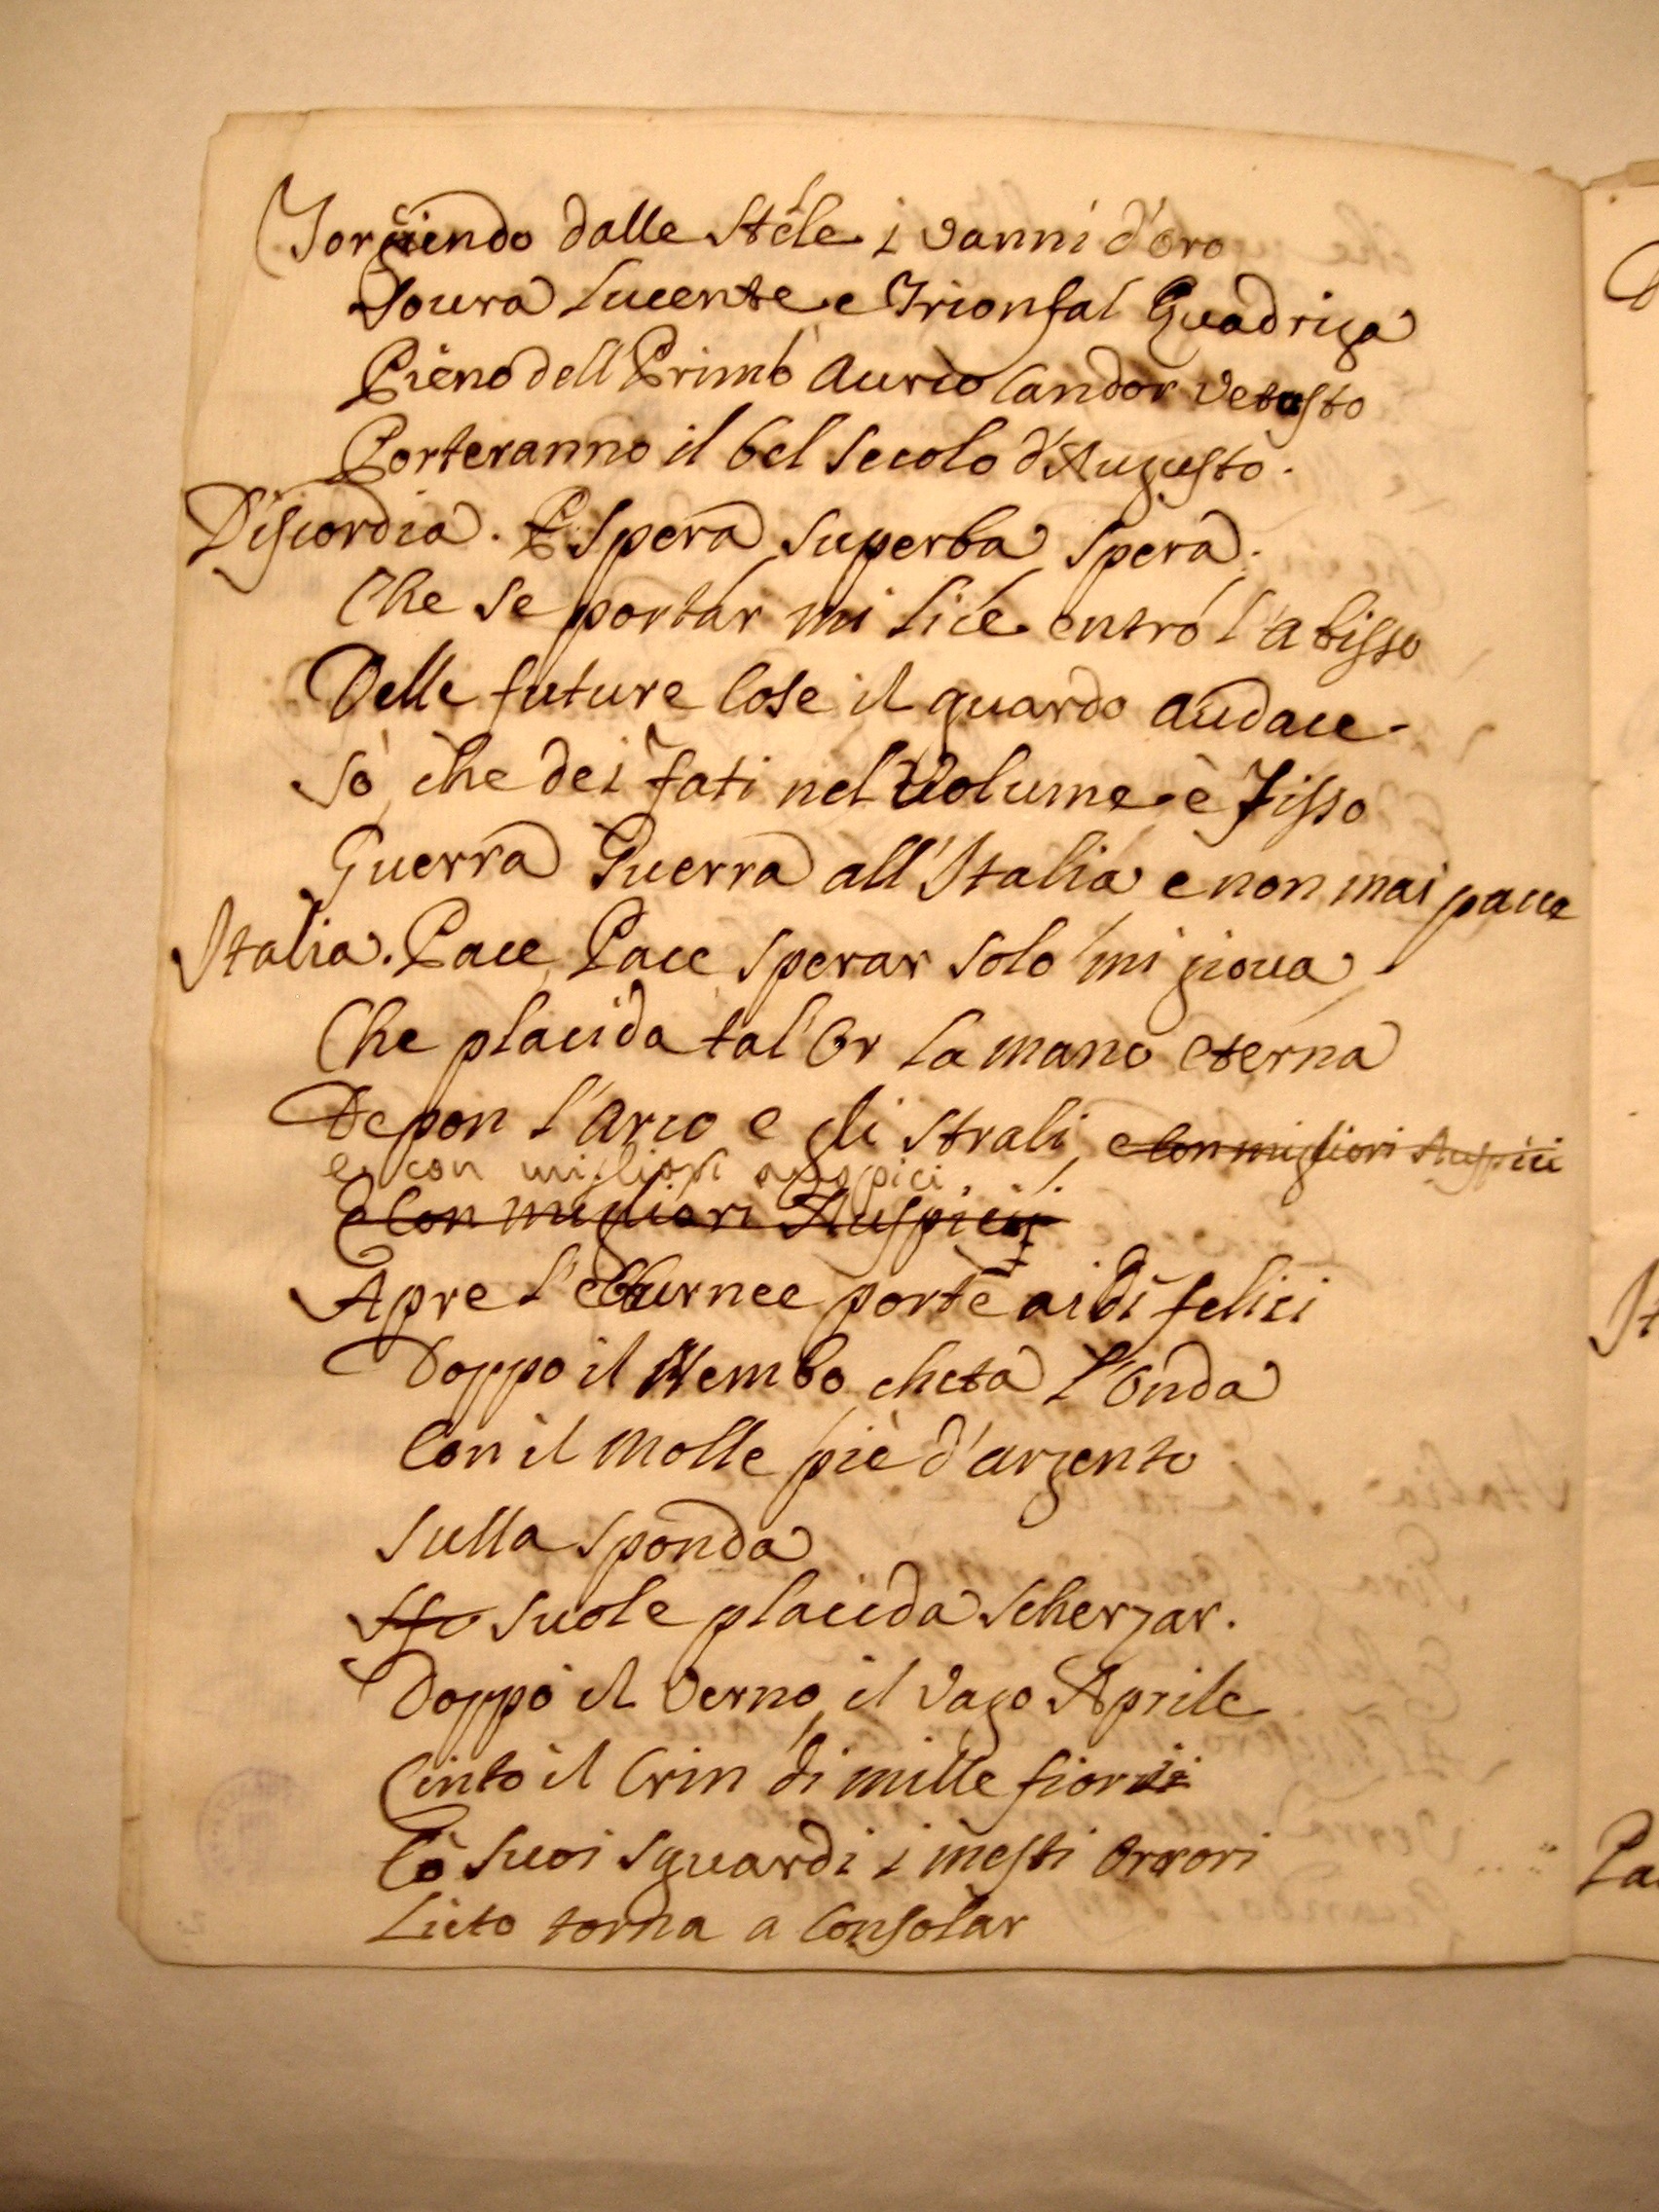 Torcendo dalle Stele i vanni d'oro
Soura lucente e Trionfal Quadriga
Pieno dell Primo Aureo Candor vetusto
Porteranno il bel secolo d'Augusto.
Discordia. E spera superba spera.
Che se portar mi lice entro l'abisso
Delle future Cose il guardo audace.
Sò che dei fati nel Volume è Fisso
Guerra Guerra all'Italia e non mai pace
Italia. Pace, Pace sperar solo mi gioua
Che placida tal'Or la mano eterna
Depon l'arco e gli strali, e Con migliori Auspici
e con migliori auspici
E Con migliori Auspicij
Apre l'eburnee porte ai dì felici
Doppo il Nembo cheta l'Onda
Con il molle piè d'argento
Sulla sponda
suole placida scherzar.
Doppo il Verno il vago Aprile
Cinto il Crin di mille fiori
Cò suoi sguardi i mesti Orrori
Lieto torna a Consolar